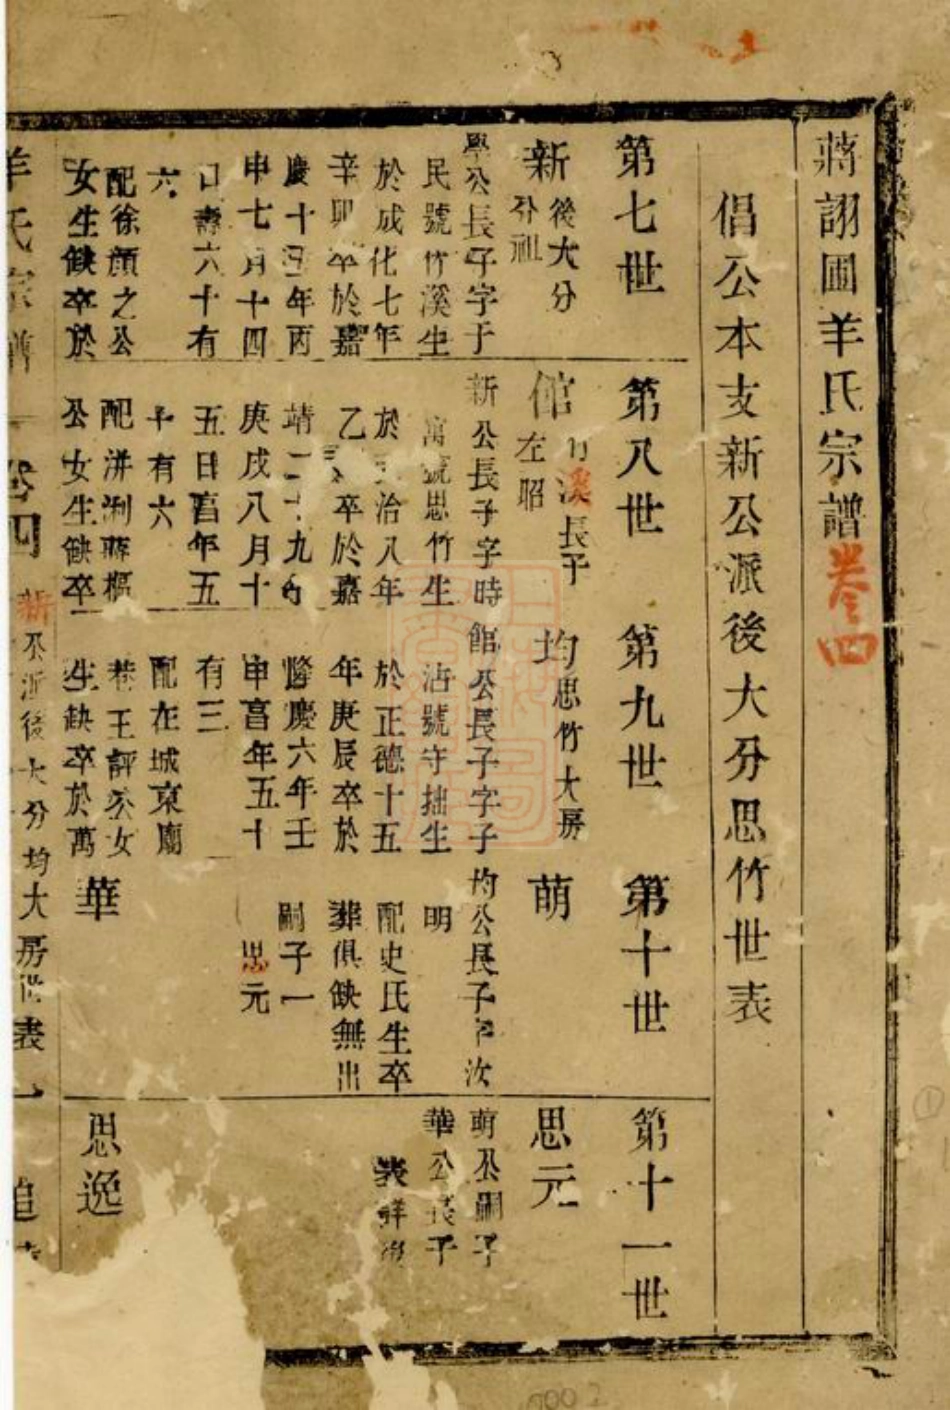 蔣詡圃羊氏宗譜卷四
倡公本支新公派後大分思竹世表
第七世
新
後大分
分祖
學公長子字于
民號竹溪生
於成化七年
辛卯卒於嘉
慶十五年丙
申七月十四
日壽六十有
六
配徐顏之公
女生缺卒於
第八世
倌
竹溪長子
左昭
新公長子字時
寓號思竹生
於弘治八年
乙卒於嘉
靖二十九年
庚戌八月十
五日喜年五
十有六
配洴浰蔣樞
公女生缺卒
第九世
均
思竹大房
館公長子字子
沾號守拙生
於正德十五
年庚辰卒於
隆慶六年壬
申喜年五十
有三
配在城東廟
巷王評公女
生缺卒於萬
第十世
萌
均公長子字汝
明
配史氏生卒
葬俱缺無出
嗣子一
思元
華
第十一世
思元
萌公嗣子
華公長子
表詳
思逸
羊氏宗譜
卷四
新公派後大分均大房世表
一
追